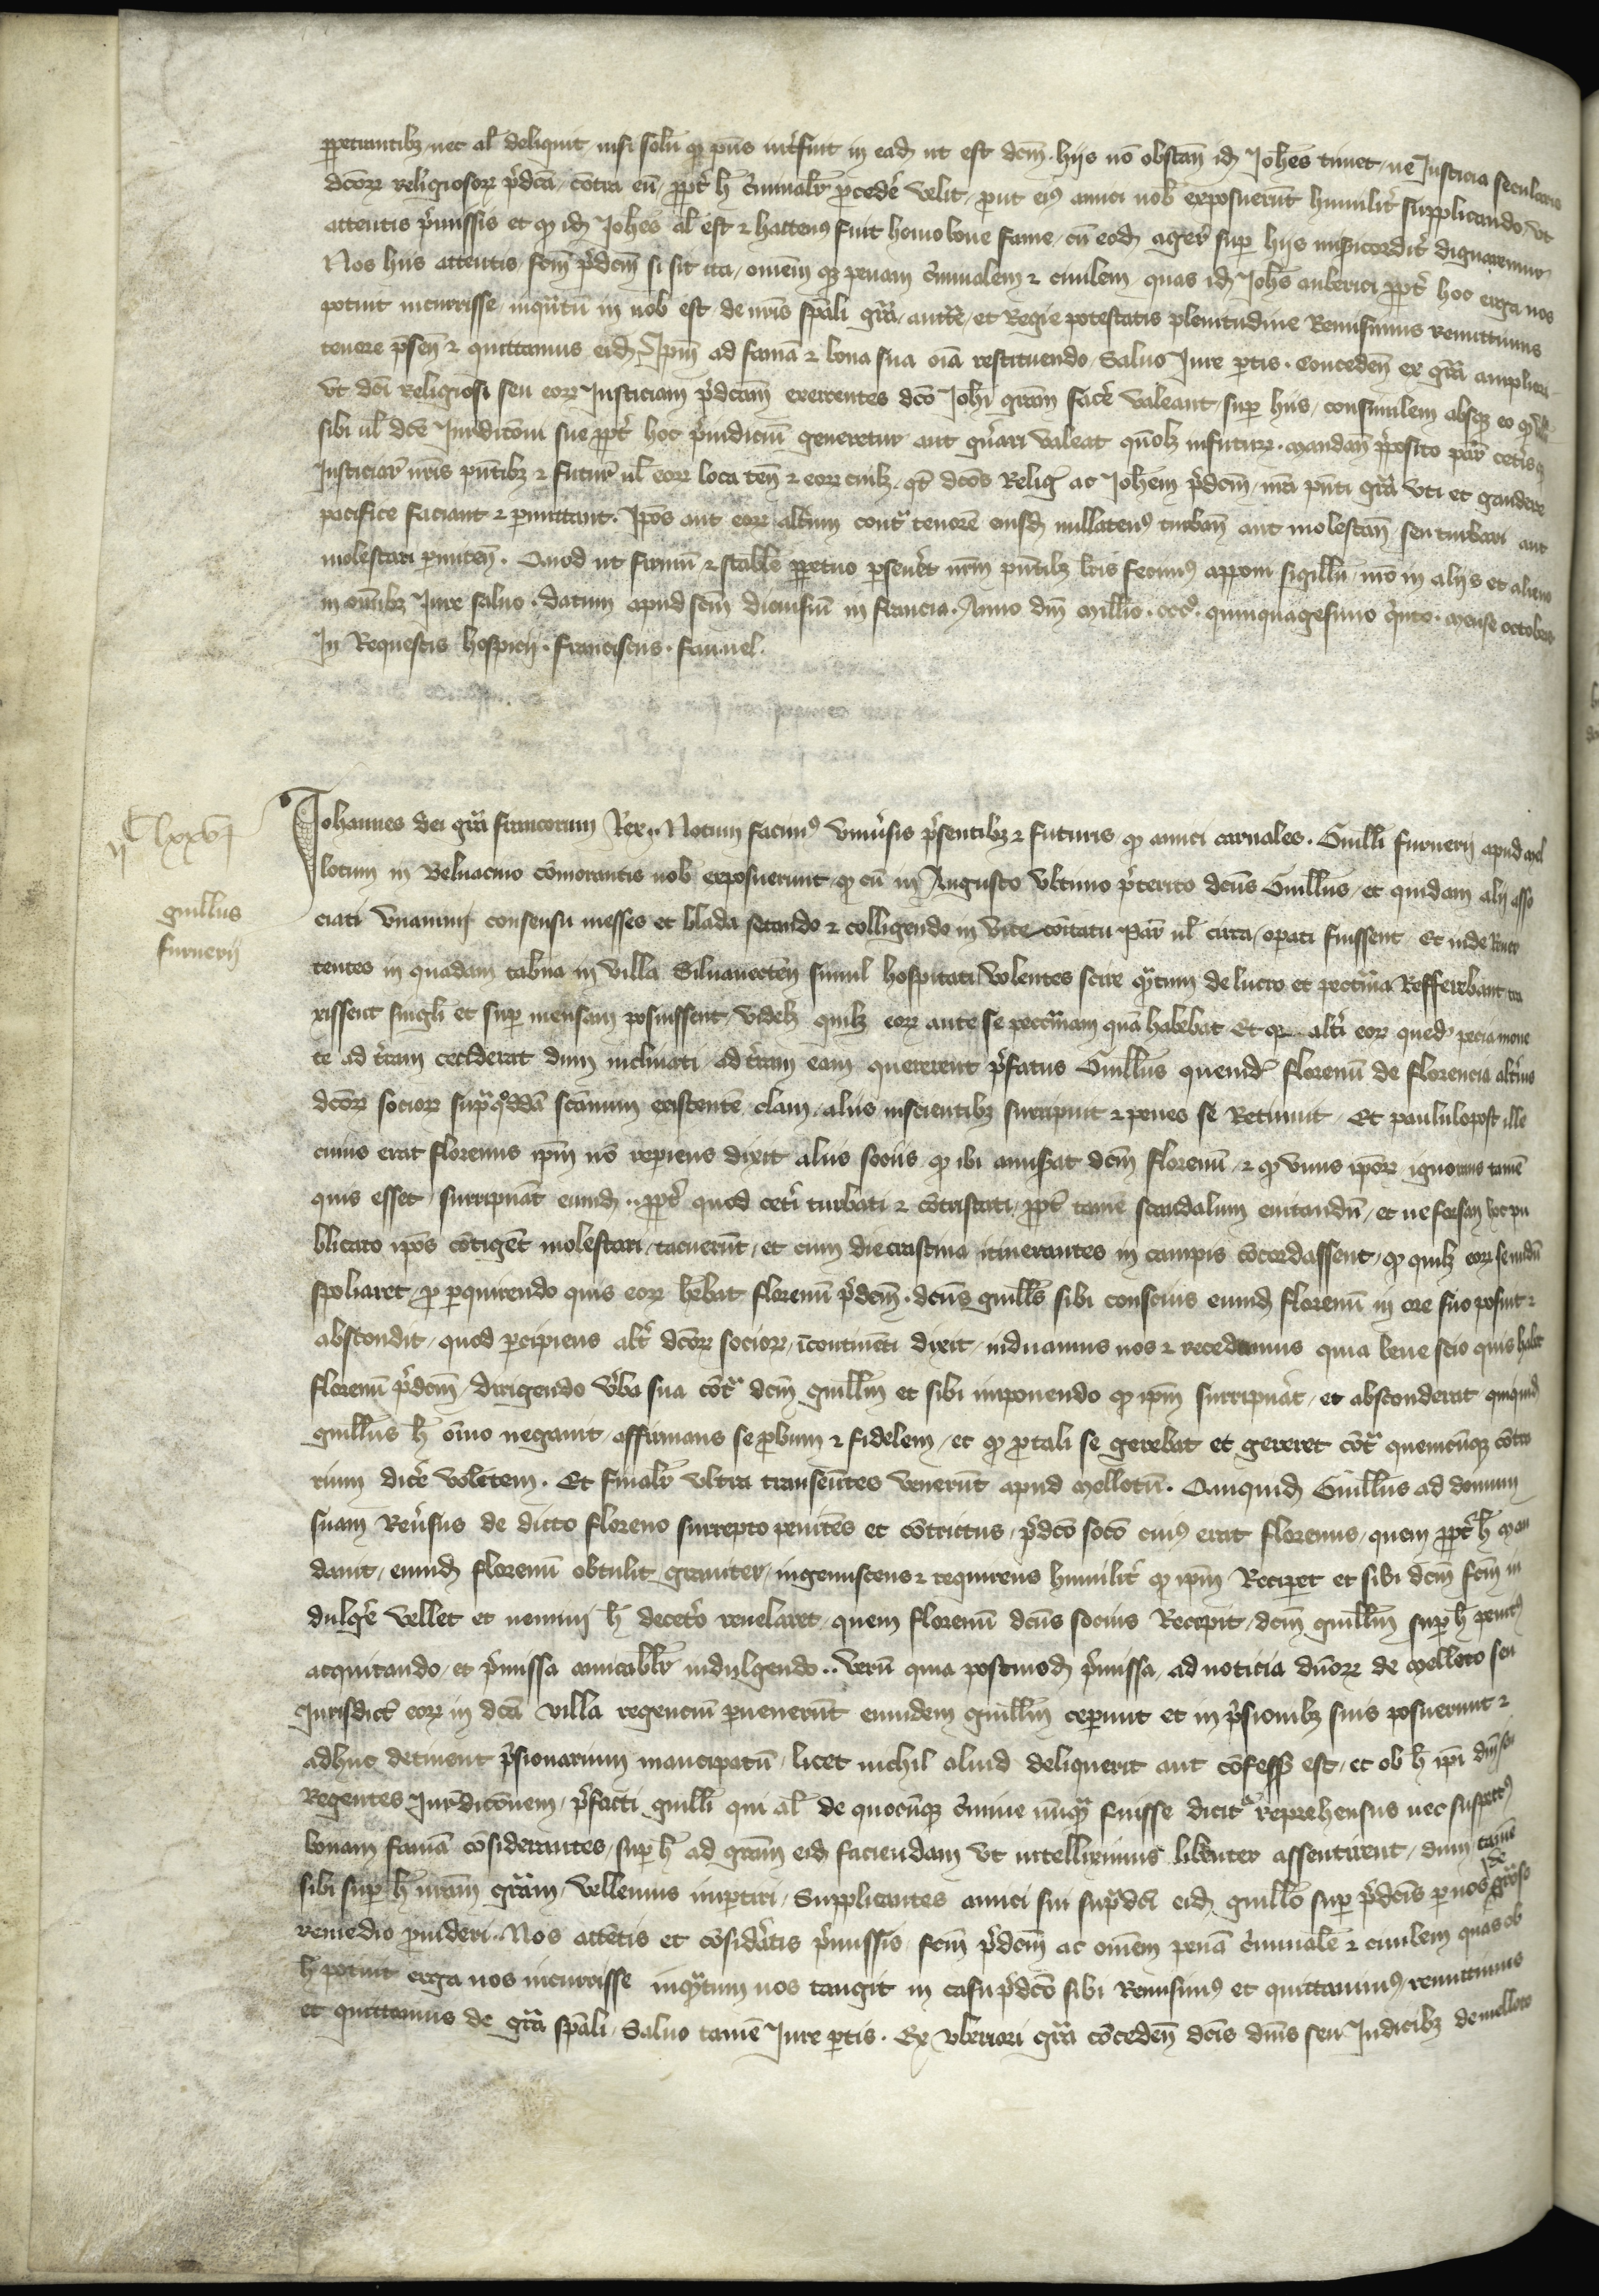 ꝑpetrantibꝫ nec al̃ deliquit nisi solũ qꝫ p̃ns int̃fuit in eadẽ ut est dc̃m. hijs nõ obstañ idẽ Joh̃es timet ne Justicia secularis
dc̃orꝝ religiosorꝝ p̃dc̃a contra eũ ꝓpt̃ h̃ c̃minalit̃ ꝓcedẽ velit ꝓut eiꝰ amici nob̃ exposuerũt humilit̃ supplicando ut
attentis p̃missis et qꝫ idẽ Joh̃es al̃ est ⁊ hactenꝰ fuit homo bone fame cũ eodẽ ager̃ suꝑ hijs miẽicordit̃ dignaremur
Nos hiis attentis fc̃m p̃dc̃m si sit ita, om̃em qꝫ penam c̃minalem ⁊ ciuilem quas idẽ Joh̃es auberici ꝓpt̃ hoc erga nos
potuit incurrisse inqũtũ in nob̃ est de nr̃is sp̃ali gr̃a auct̃e et Regie potestatis plenitudine Remisimus remittimus
tenore p̃señ ⁊ quittamus eidẽ Ip̃m ad famã ⁊ bona sua oĩa restituendo Saluo Jure ꝑtis. Concedeñ ex gr̃a ampliori
vt dc̃i Religiosi seu eorꝝ Justiciam p̃dc̃am exercentes dc̃o Joh̃i gr̃am facẽ valeant suꝑ hiis consimilem absqꝫ eo qꝫ
sibi ul̃ dc̃e Jur̃dic̃oni sue ꝓpt̃ hoc p̃iudiciũ generetur aut gñari valeat quõlꝫ infuturꝝ. Mandañ p̃posito par̃ cet̃isqꝫ
Justiciar̃ nr̃is p̃ntibꝫ ⁊ futur̃ ul̃ eorꝝ loca teñ ⁊ eorꝝ cuilꝫ qt̃ dc̃os Relig̃ ac Joh̃em p̃dc̃m nr̃a p̃nti gr̃a vti et gaudere
pacifice faciant ⁊ ꝑmittant. Ip̃os aut eorꝝ alt̃um cont̃ tenorẽ eiusdẽ nullatenꝰ turbañ aut molestañ seu turbari aut
molestari ꝑmitteñ. Quod ut firmũ ⁊ stabile ꝑpetuo ꝑseuẽt nr̃m p̃ntibꝫ lr̃is fecimꝰ apponi sigillũ nr̃o in alijs et alieno
in om̃ibꝫ Jure saluo. datum apud sc̃m dionisiũ in francia. Anno dñi mill̃io. cccᵒ. quinquagesimo q̃nto. mense octobris
In Requestis hospicij. franciscus. fauuel.

ijᶜ lxxvj
guill̃us
furnerij

Johannes dei gr̃a francorum Rex. Notum facimꝰ vniũsis p̃sentibꝫ ⁊ futuris qꝫ amici carnales. Guill̃i furnerij apud mel
lotum in Beluacino cõmorantis nob̃ exposuerunt qꝫ cũ in Augusto vltimo p̃terito dc̃us Guill̃us et quidam alij asso
ciati vnanimi consensu messes et blada secando ⁊ colligendo in vicecõitatu Par̃ ul̃ circa oꝑati fuissent Et inde Reuer
tentes in quadam tab̃na in villa Siluanecteñ simul hospitati volentes scire qũtum de lucro et peccũia Refferebant tra
xissent singl̃i et suꝑ mensam posuissent videlꝫ quilꝫ eorꝝ ante se peccũiam quã habebat Et qꝫ alt̃i eorꝝ quedã pecia mone
te ad t̃ram ceciderat dum inclinati ad t̃ram eam quererent p̃fatus Guill̃us quemdẽ florenũ de florencia alt̃ius
dc̃orꝝ sociorꝝ suꝑ qᵒddã scãnum existentẽ clam alijs inscientibꝫ surripuit ⁊ penes se Retinuit Et paululopost ille
cuius erat florenus ip̃m nõ reꝑiens dixit alijs socijs qꝫ ibi amisẽat dc̃m florenũ ⁊ qꝫ vnus ip̃orꝝ ignorans tamẽ
quis esset surripuãt eumdẽ.. ꝓpt̃ quod cet̃i turbati ⁊ cõtristati ꝓpt̃ tamẽ scandalum euitandũ et ne forsan hoc pu
blicato ip̃os cõtigẽt molestari tacuerũt et cum die crastina itinerantes in campis cõcordassent qꝫ quilꝫ eorꝝ se nudũ
spoliaret ꝓ ꝑquirendo quis eorꝝ hẽbat florenũ p̃dc̃m. dc̃us guill̃us sibi conscius eumdẽ florenũ in ore suo posuit ⁊
abscondit quod ꝑcipiens alt̃ dc̃orꝝ sociorꝝ ĩcontinẽti dixit induamus nos ⁊ recedamus quia bene scio quis habet
florenũ p̃dc̃m dirigendo v̾ba sua cõt̃ dc̃m guill̃m et sibi imponendo qꝫ ip̃m surripuãt et absconderat quiquidẽ
guill̃us h̃ oĩno negauit affirmans se ꝓbum ⁊ fidelem et qꝫ ꝓ tali se gerebat et gereret cõt̃ quemcũqꝫ cõtra
rium dicẽ volẽtem. Et finalit̃ vltra transeũtes venerũt apud Mellotũ. Quiquidẽ Guill̃us ad domum
suam Reũsus de dicto floreno surrepto penitẽs et cõtrictus p̃dc̃o soc̃o cuiꝰ erat florenus quem ꝓpt̃ h̃ man
dauit eumdẽ florenũ obtulit grauiter ingemiscens ⁊ requirens humilit̃ qꝫ ip̃m Reciꝑet et sibi dc̃m fc̃m in
dulgẽ vellet et nemini h̃ decet̃o reuelaret quem florenũ dc̃us socius Recepit dc̃m guill̃m suꝑ h̃ penitꝰ
acquitando et p̃missa amicabilit̃ indulgendo.. verũ quia postmodũ p̃missa ad noticiã dñorꝝ de Melloto seu
Jurisdict̃ eorꝝ in dc̃a villa regenciũ ꝑuenerũt eumdem guill̃m ceperunt et in p̃sionibꝫ suis posuerunt ⁊
adhuc detinent p̃sionarium mancipatũ licet nichil aliud deliquerit aut cõfessꝰ est et ob h̃ ip̃i dñi seu
Regentes Jur̃dic̃onem p̃facti guill̃i qui al̃ de quocũqꝫ c̃mine nũqũ fuisse dicit̃ reprehensus nec suspectꝰ
bonam famã cõsiderantes suꝑ h̃ ad gr̃am eidẽ faciendam vt intelleximus libenter assentirent dum tamẽ
sibi suꝑ h̃ nr̃am gr̃am vellemus imꝑtiri Supplicantes amici sui sup̃dc̃i eidẽ guill̃o suꝑ p̃dc̃is ꝑ nos de gr̃oso
remedio ꝓuideri. Nos attẽtis et cõsidẽatis p̃missis fc̃m p̃dc̃m ac om̃em penã c̃minalẽ ⁊ ciuilem quas ob
h̃ potuit erga nos incurrisse inqũtum nos tangit in casu p̃dc̃o sibi Remisimꝰ et quittauimꝰ remittimus
et quittamus de gr̃a sp̃ali Saluo tamẽ Jure ꝑtis. Ex vberiori gr̃a cõcedeñ dc̃is dñis seu Judicibꝫ de melloto